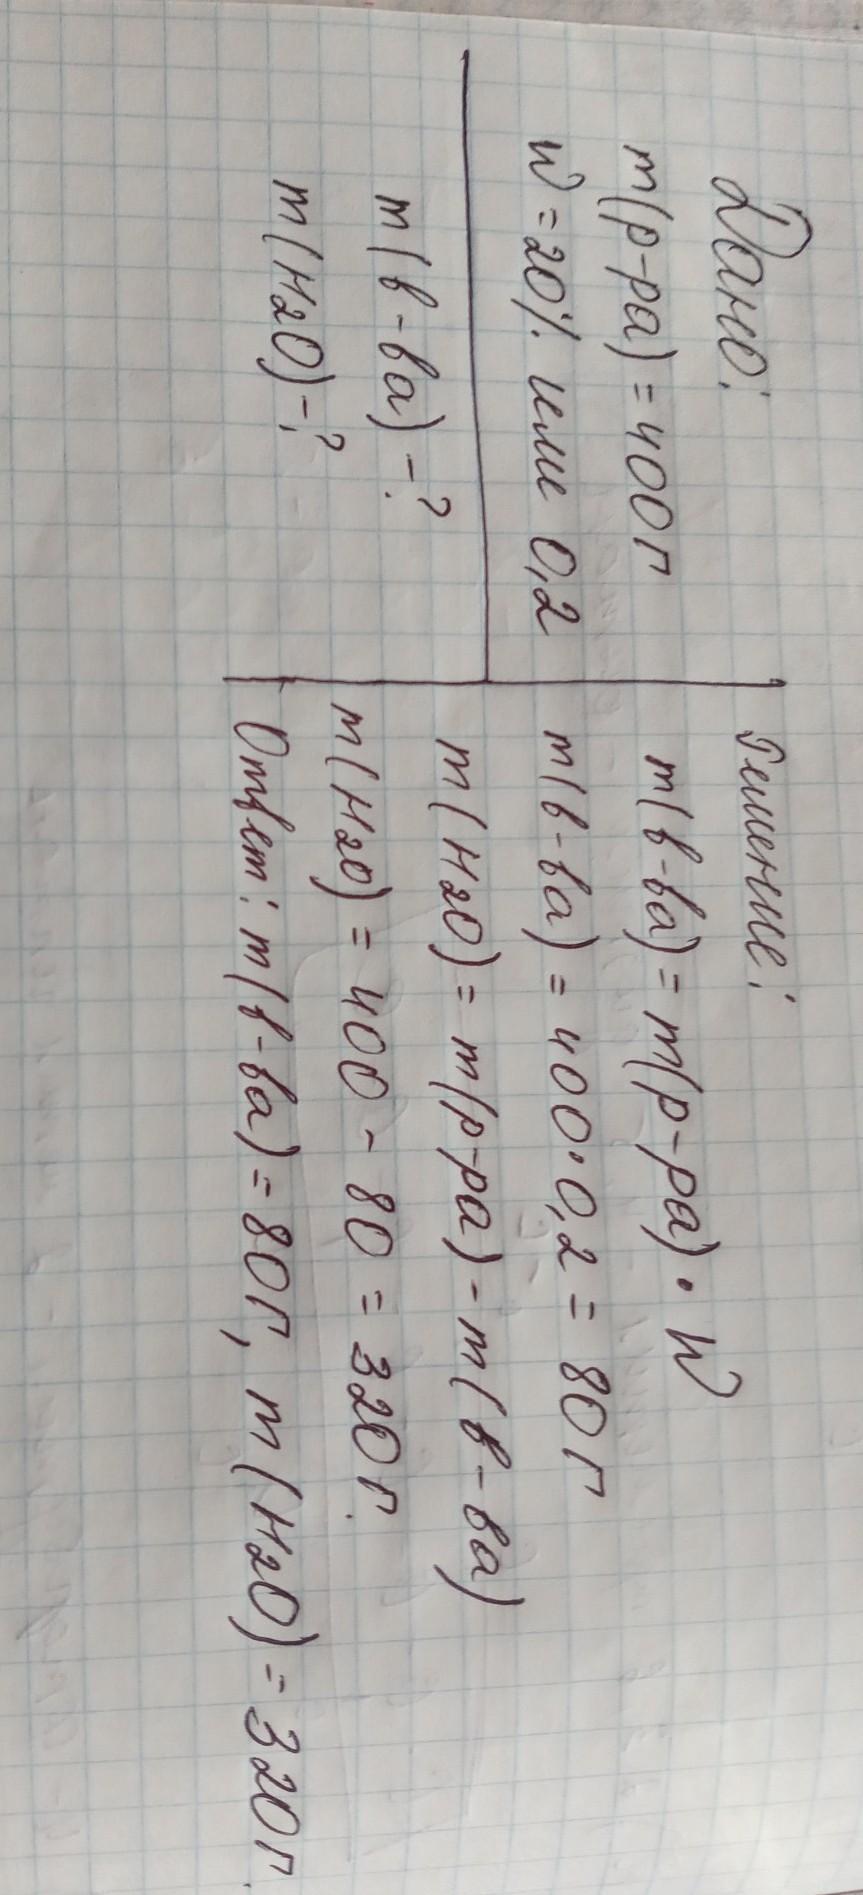 Дано:
m(р-ра) = 400 г
W = 20% или 0,2
m(в-ва) - ?
m(H2O) - ?
Решение:
m(в-ва) = m(р-ра) • W
m(в-ва) = 400 • 0,2 = 80 г
m(H2O) = m(р-ра) - m(в-ва)
m(H2O) = 400 - 80 = 320 г.
Ответ: m(в-ва) = 80г, m(H2O) = 320г.